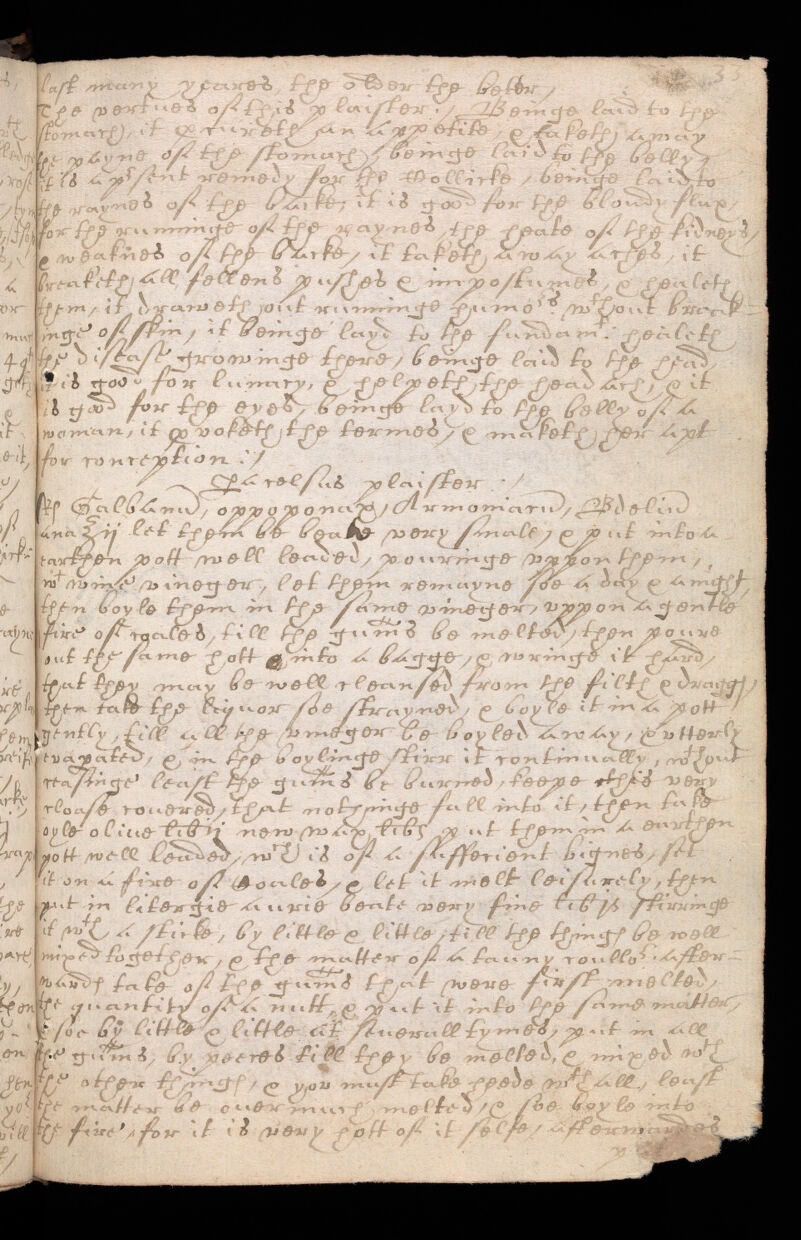 35
last many yeares, the older the beter,
The vertues of this plaister:/ Beinge laid to the
stomach, it pcureth an appetite, & taketh away
the payne of the stomach, beinge laid to the belly,
it is a psent remedy for the Collicke, beinge laid to
the raynes of the backe, it is good for the bloudy flux,
for the runninge of the raynes, the heate of the kidneys,
& weaknes of the backe, it taketh away aches, it
breaketh all fellens pushes & impostumes, & healeth
them, it draweth out runninge humors wthout breack=
inge of skin, it beinge layd to the fundamt: healeth
the disease growinge there, beinge laid to the head,
it is good for lunacy, & helpeth the head ach, & it
is good for the eyes, beinge layd to the belly of a
woman, it pvoketh the termes, & maketh her apt
for conception:/
Pacelsus plaister:/
Rx Galbanu, oppoponax, Armoniacu, Bdeliu
ana ʒij let them be beate very small, & put into a
earthen pott well leaded, pouringe vppon them,
wt wine vineger, let them remayne soe a day & a night,
then boyle them in the same vineger, vppon a gentle
fire of coales, till the gums be melted, then poure
out the same hott into a bagge, & wringe it hard,
that they may be well cleansed from the filth & draggs,
then take the liquor soe strayned, & boyle it in a pott
gently, till all the vineger be boyled away, & vtterly
evapated, & in the boylinge stirr it continually, wthout
ceasinge least the gums be burned, keepe this very
cloase couered, that nothinge fall into it, then take
oyle oliue libij new wax, libß put them in a earthen
pott well leaded, wch is of a sufferient bignes, set
it on a fire of Coales, & let it melt leisurely, then
put in litergie aurie beate very fine lib jß stirringe
it wth a sticke, by little & little, till the things be well
mixed together, & the matter of a tauny coullor: after=
wards take of the gums that were first melted,
the quantity of a nutt, & put it into the same matter,
& soe by little & little at seuerall tymes, put in all
the gums, by peeces till they be melted, & mixed wth
the other things, & you must take heede wth all, least
the matter be ouer much melted, & soe boyle into
the fire, for it is very hott of it selfe, afterwardes